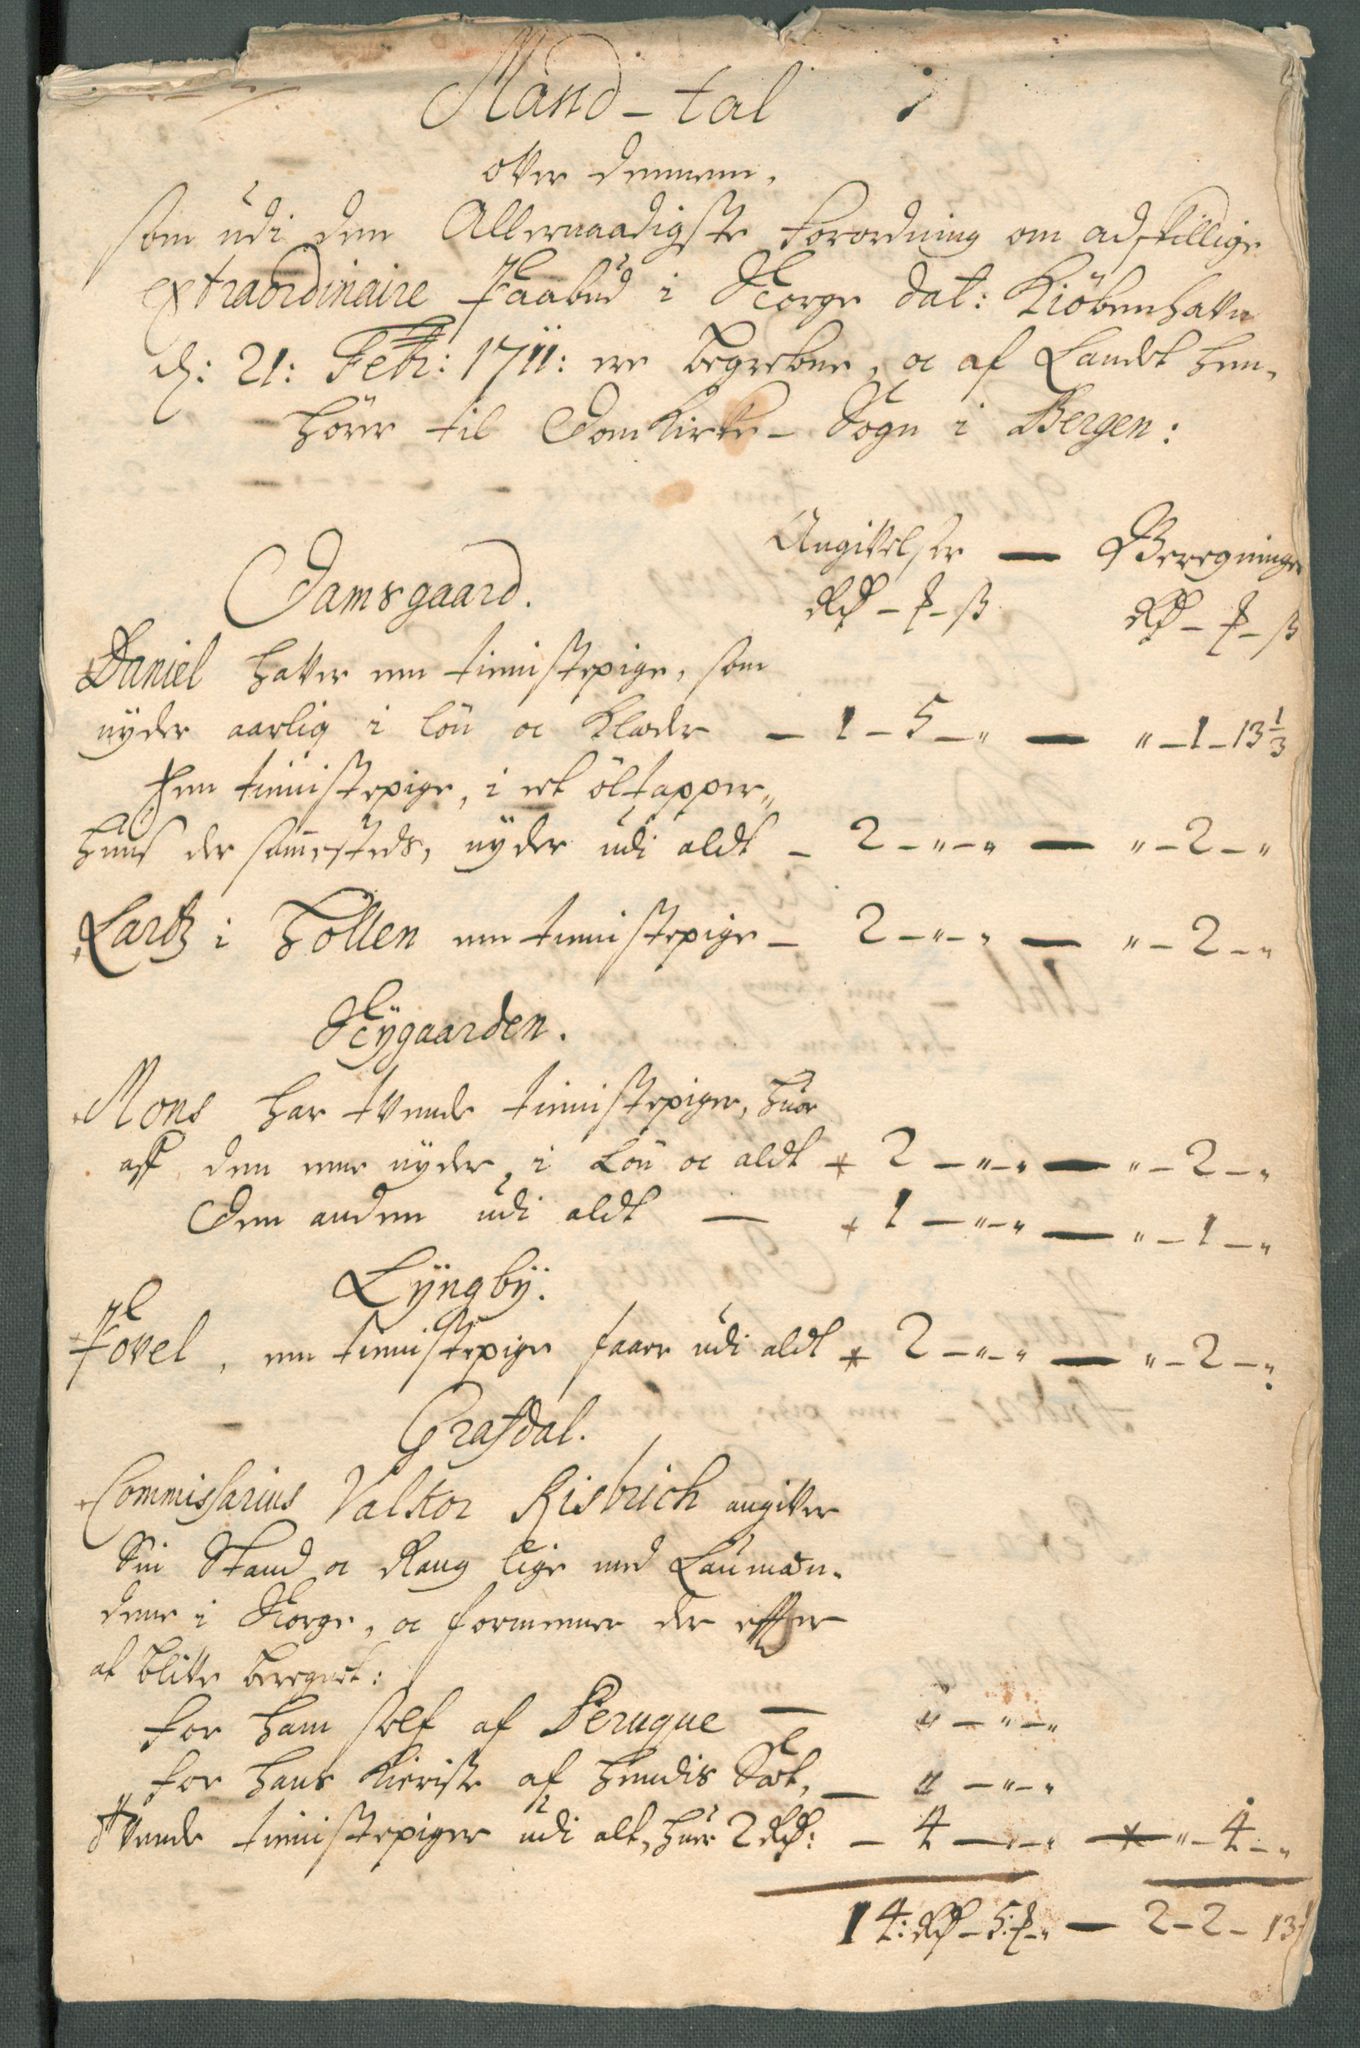 Mand-tal
ofver dennem,
som udi den Allernaadigste forordning om adskillige
extraordinaire Paabud i Norge dat: Kiöbenhafn
d: 21: Febr: 1711: ere begrebne, oc af Landet hen-
hörer til DomKirke-Sogn i Bergen:
Angifvelser — Beregninger
Damsgaard.
Rd - ß
Rd - ß
Daniel hafver en tienistepige, som
nyder aarlig i lön oc Klæder — 1 - 5 - " — " - 1 - 13 1/3
Een tienistepige, i et öltapper-
huus der sammesteds, nyder udi aldt - 2 - " - " — " - 2 - "
Lartz i Hollen en tienistepige - 2 - " - " — " - 2 - "
Nygaarden.
Mons har tvende tienistepiger, huor
aff den ene nyder, i Lön oc aldt + 2 - " - " — " - 2 - "
Den anden udi aldt — + 1 - " - " — " - 1 - "
Lyngby.
Povel, en tienistepige faaer udi aldt + 2 - " - " — " - 2 - "
Grafdal.
Commissarius Valkor Risbrich angifver
Sin Stand oc Rang lige med Laumæn-
dene i Norge, oc formeener der effter
at blifve beregnet:
for ham self af Peruque — " - " - "
for hans Kieriste af hendis Sæt, — " - " - "
Tvende tienistepiger udi alt, huer 2 Rd: - 4 - " - " — " - 4 - "
14: Rd - 5: - " — 2 - 2 - 13